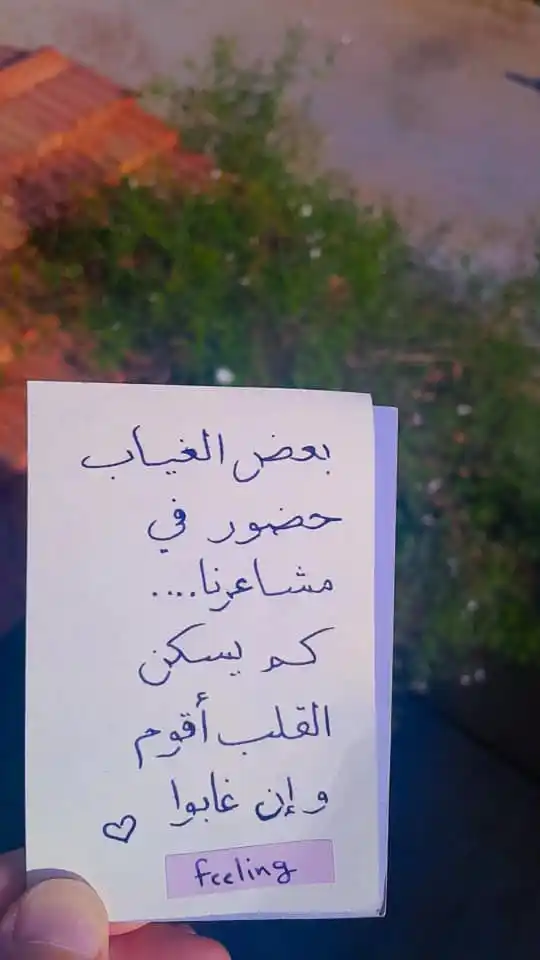 بعض الغياب
حضور في
مشاعرنا....
كم يسكن
القلب أقوم
وإن غابوا
feeling